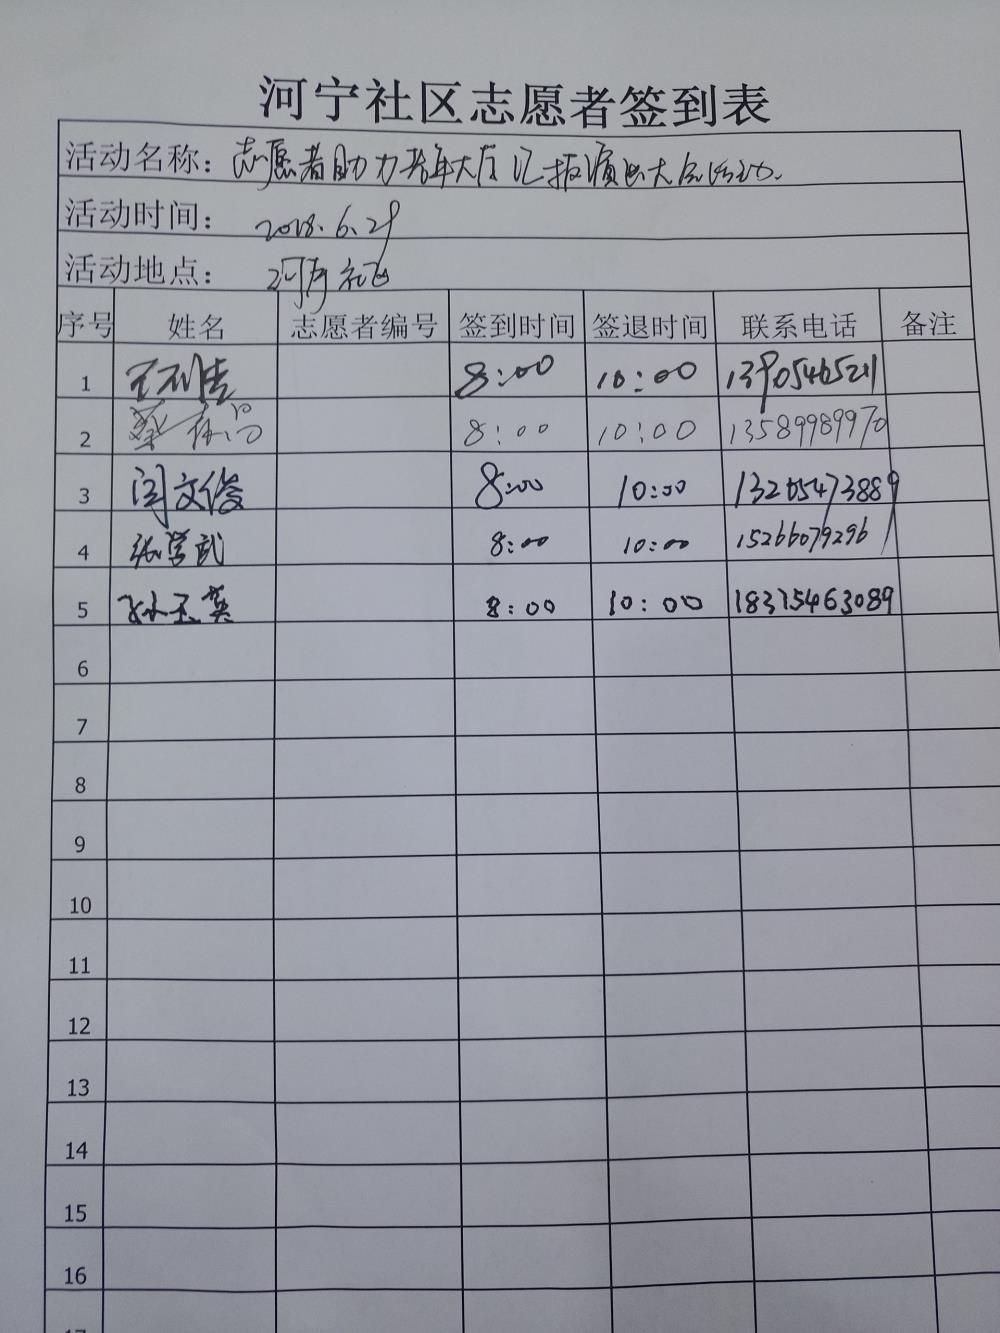 河宁社区志愿者签到表
活动名称: 志愿者助力老年大学汇报演出大会活动.
活动时间: 2018.6.29
活动地点: 河宁社区
序号 姓名 志愿者编号 签到时间 签退时间 联系电话 备注
1 王 8:00 10:00 13905465211
2 蔡 8:00 10:00 13589989970
3 闫文俊 8:00 10:00 13205473889
4 张学武 8:00 10:00 15266079296
5 孙玉英 8:00 10:00 18315463089
6
7
8
9
10
11
12
13
14
15
16
17